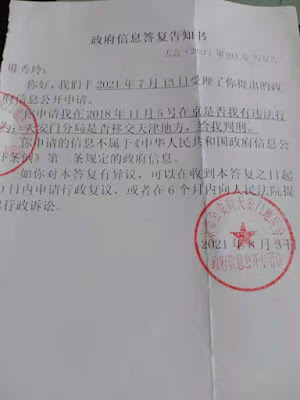 政府信息答复告知书
毋秀玲：
你好，我们于2021年7月13日受理了你提出的政
府信息公开申请。
你申请我在2018年11月5号在京是否我有违法行
为，天安门分局是否移交天津地方，给我判刑。
你申请的信息不属于《中华人民共和国政府信息公
开条例》第二条规定的政府信息。
如你对本答复有异议，可以在收到本答复之日起
日内申请行政复议，或者在6个月内向人民法院提
起行政诉讼。
2021年8月3
政府信息公开专用章